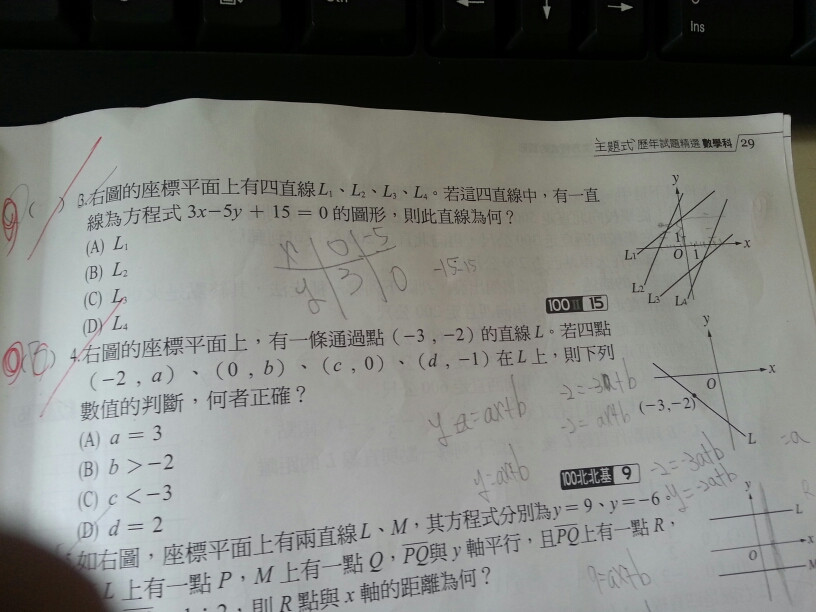 Ins
主題式 歷年試題精選 數學科 29
3.右圖的座標平面上有四直線L₁、L₂、L₃、L₄。若這四直線中,有一直
線為方程式 3x-5y + 15 = 0 的圖形,則此直線為何?
(A) L₁
(B) L₂
(C) L₃
(D) L₄
x 0 -5
y 3 0
-15+15
y
x
1
O 1
L₁
L₂
L₃ L₄
100 II 15
4.右圖的座標平面上,有一條通過點(-3,-2)的直線L。若四點
(-2,a)、(0,b)、(c,0)、(d,-1)在L上,則下列
數值的判斷,何者正確?
(A) a = 3
(B) b > -2
(C) c < -3
(D) d = 2
y
x
O
(-3,-2)
L
-2=-3a+b
-2=ax+b
y=ax+b
-2=-3a+b
y=-2a+b
=a
100北北基 9
如右圖,座標平面上有兩直線L、M,其方程式分別為y = 9、y = -6。
L 上有一點 P,M 上有一點 Q,PQ與 y 軸平行,且PQ上有一點 R,
:2,則 R 點與 x 軸的距離為何?
9=ax+b
y
L
x
O
M